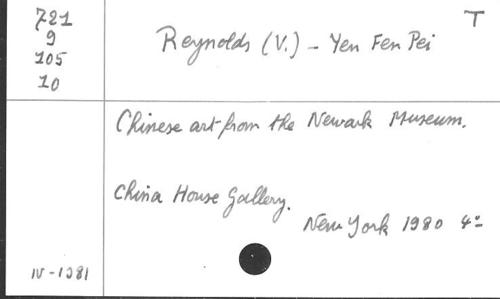 721
9
105
10
T
Reynolds (V.) - Yen Fen Pei
Chinese art from the Newark Museum.
China House Gallery.
New York 1980 4º
IV-1981